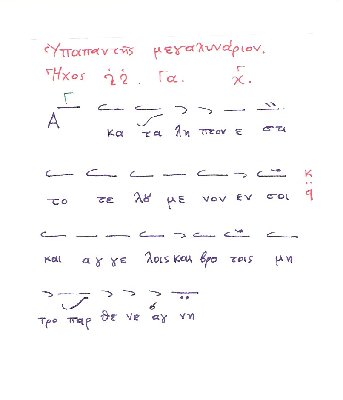 Υπαπαντής μεγαλυνάριον.
Ήχος Γα.
Α κα τα λη πτον ε στι
το τε λου με νον εν σοι
και αγ γε λοις και βρο τοις μη
τρο παρ θε νε αγ νη